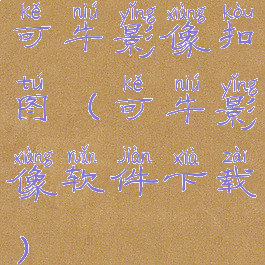 kě niú yǐng xiàng kòu
可牛影像扣
tú kě niú yǐng
图(可牛影
xiàng ruǎn jiàn xià zài
像软件下载
)